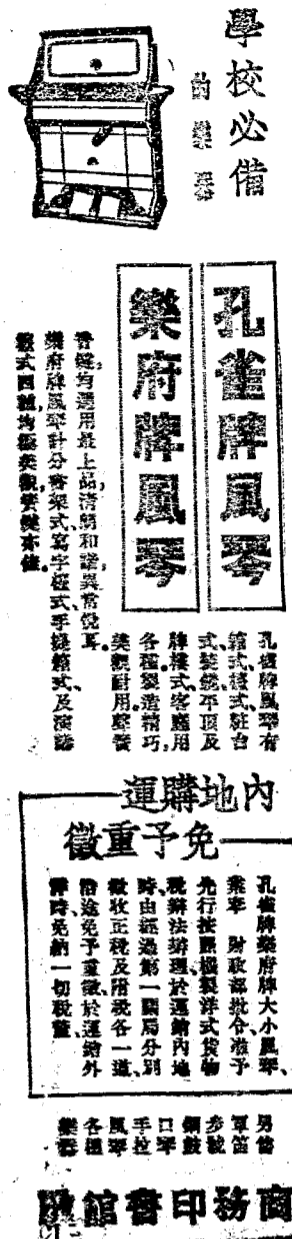 學校必備
的樂器
孔雀牌風琴
樂府牌風琴
孔雀牌風琴有
箱式檯式粧台
式裝鏡平頂及
牌樓式客廳用
各種製造精巧
美觀耐用聲音
音鍵均選用最上品清韻和諧異常悅耳
樂府牌風琴計分書架式寫字檯式手提箱式及演講
檯式四種均極美觀
內地購運
免予重徵
孔雀牌樂府牌大小風琴
業奉 財政部批令准予
先行按照機製洋式貨物
稅辦法辦理於運銷內地
時由經過第一關局分別
徵收正稅及附稅各一道
沿途免予重徵於運銷外
洋時免納一切稅釐
軍笛
步號
銅鼓
口琴
手拉
風琴
各種
樂器
商務印書館